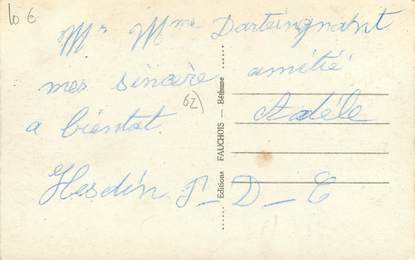 10 €
Mr Mme Darteingnant
mes sincère amitié
62)
a bientot. Adèle
Hesdin P-D-C
Editions FAUCHOIS — Béthune